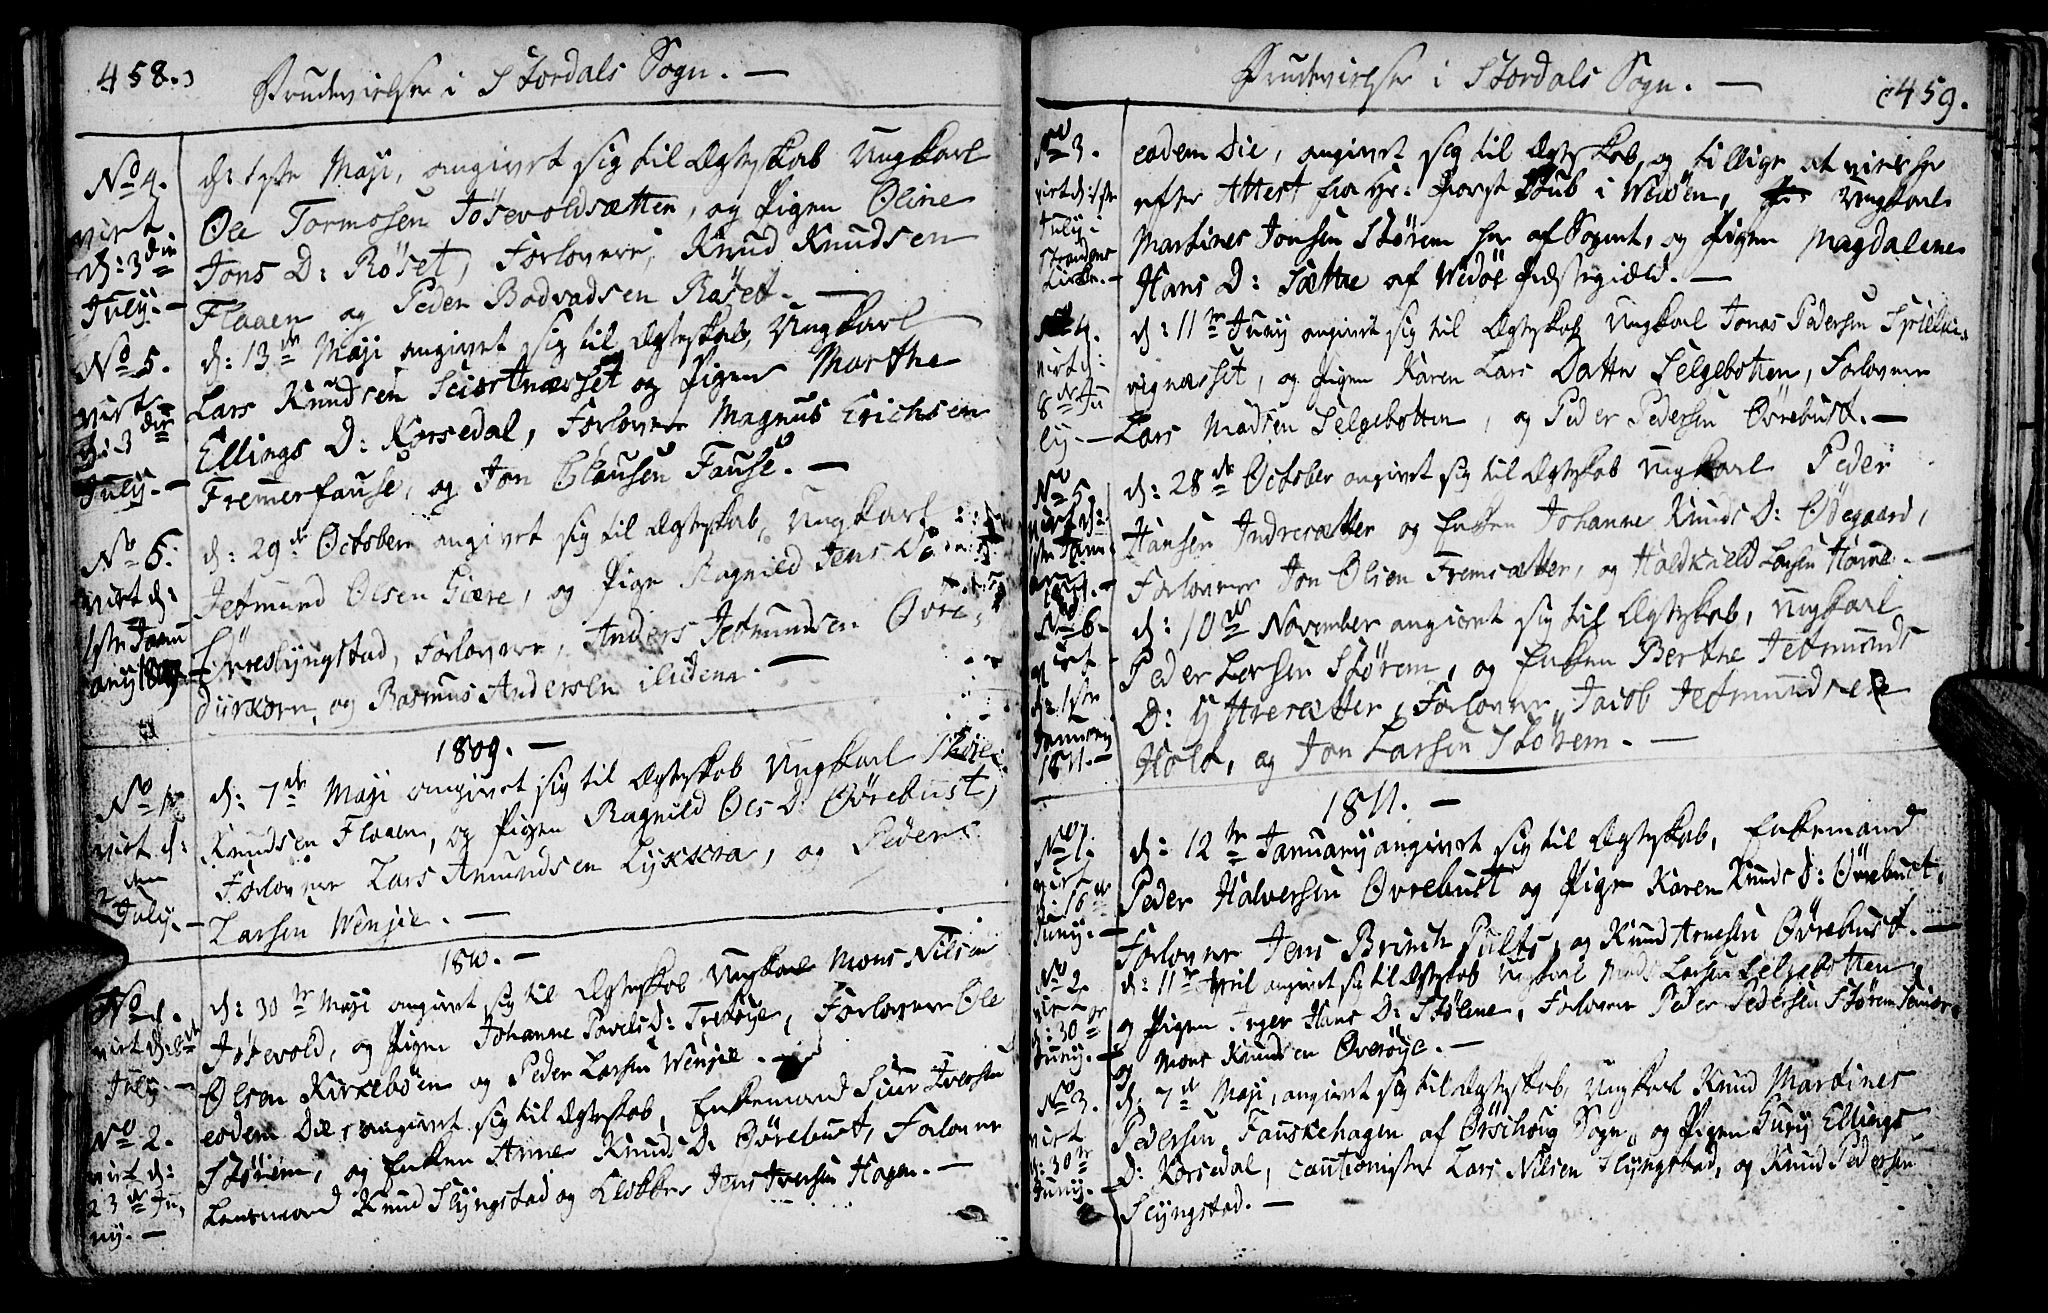 458.
Brudevielser i Stordals Sogn. —
No 4.
viet
d: 3die
July. —
d: 1ste Maji, angivet sig til Ægteskab Ungkarl
Ole Tormosen Jøsevoldsætten, og Pigen Oline
Jons D: Røset, Forlovere, Knud Knudsen
Flaaen og Peder Bodvadsen Røset. —
No 5.
viet
d: 3die
July. —
d: 13de Maji angivet sig til Ægteskab, Ungkarl
Lars Knudsen Sciortnæsset og Pigen Marthe
Ellings D: Korsedal, Forlovere Magnus Erichsen
Fremerfause, og Jon Clausen Fause. —
No 6.
viet d:
1ste Janu
ary
d: 29de October angivet sig til Ægteskab, Ungkarl
Jetmund Olsen Giære, og Pige Ragnild Jens D:
Øvreslyngstad, Forlovere, Anders Jetmundsen Øvre-
Dürkorn, og Rasmus Andersen ilidem. —
1809. —
No 1
viet d:
2den
July. —
d: 7de Maji angivet sig til Ægteskab Ungkarl
Knudsen Flaaen, og Pigen Ragnild Ols D: Øvrebust,
Forlovere Lars Amundsen Lykkra, og Peder
Larsen Wensie. —
1810. —
No 1.
viet d: 8de
July. —
d: 30te Maji angivet sig til Ægteskab Ungkarl Mons Nilsen
Jøsevold, og Pigen Johanne Povels D: Tresøye, Forlovere Ole
Olsen Kirkebøen og Peder Larsen Wensie. —
No 2.
viet d:
23de Ju-
ny. —
eodem Die, angivet sig til Ægteskab, Enkemand Siur Iversen
Størem, og Enken Anne Knuds D: Øvrebust, Forlovere
Lensmand Knud Slyngstad og Klokker Jens Iversen Hagen. —
Brudevielser i Stordals Sogn. —
459.
No 3.
viet d: 1ste
July i
Strandens
Kirke. —
eodem Die, angivet sig til Ægteskab, og tillige at vies her
efter Attest fra Hr: Provst Stub i Wedøen, Ungkarl
Martines Jonsen Størem her af Sognet, og Pigen Magdalene
Hans D: Sætne af Wedøe Præstegield. —
No 4.
viet d:
8de Ju
ly. —
d: 11te Juny angivet sig til Ægteskab Ungkarl Jonas Pedersen Spielka-
vignæsset, og Pigen Karen Lars Datter Selgebotten, Forlovere
Lars Madsen Selgebotten, og Peder Pedersen Øvrebust. —
No 5.
viet d:
1ste Janu-
ary
1811. —
d: 28de October angivet sig til Ægteskab Ungkarl Peder
Hansen Indresætter og Enken Johanne Knuds D: Ødegaard,
Forlovere Jon Olsen Fremsætter, og Haldkield Larsen Hove. —
No 6.
viet
d: 1ste
January
1811. —
d: 10de November angivet sig til Ægteskab, Ungkarl
Peder Larsen Størem, og Enken Berthe Jetmunds
D: Ystresætter, Forlovere Jacob Jetmundsen
Hole, og Jon Larsen Størem. —
1811. —
No 1.
viet
d: 16de
Juny. —
d: 12te January angivet sig til Ægteskab, Enkemand
Peder Halversen Øvrebust og Pige Karen Knuds D: Øvrebust,
Forlovere Jens Brinch Pults, og Knud Arnesen Øvrebust. —
No 2.
viet
d: 30te
Juny. —
d: 11te April angivet sig til Ægteskab Ungkarl Mads Larsen Selgebotten
og Pigen Inger Hans D: Stølene, Forlovere Peder Pedersen Størem Senior,
og Mons Knudsen Overøye. —
No 3.
viet
d: 30te
Juny. —
d: 7de Maji, angivet sig til Ægteskab, Ungkarl Knud Martines
Pedersen Fauskehagen af Ørschoug Sogn, og Pigen Gury Ellings
D: Korsedal, Cautionister Lars Nilsen Slyngstad, og Knud Pedersen
Slyngstad. —